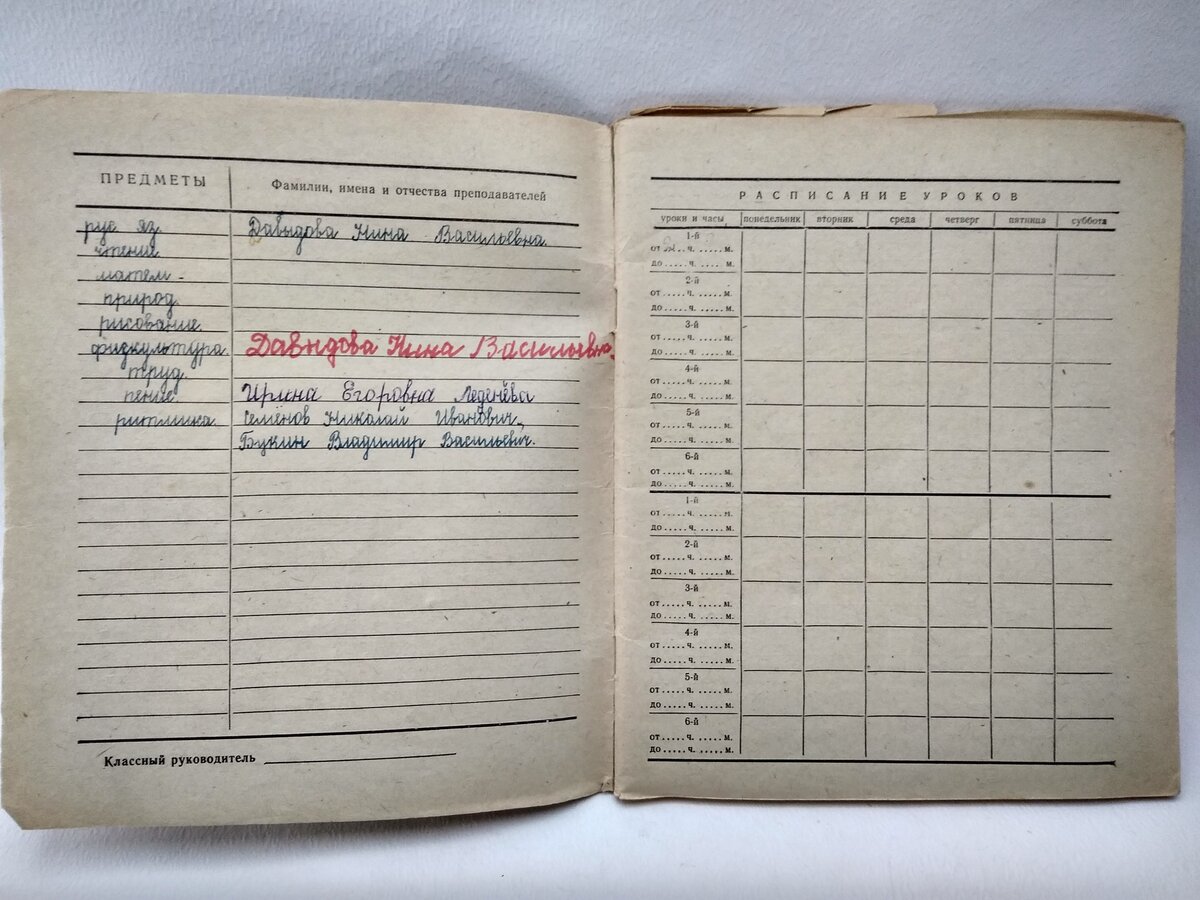 ПРЕДМЕТЫ
Фамилии, имена и отчества преподавателей
рус яз. Давыдова Нина Васильевна.
чтение.
матем-
природ.
рисование.
физкультура. Давыдова Нина Васильевна.
труд.
пение Ирина Егоровна Леденёва
ритмика. Семёнов Николай Иванович,
Букин Владимир Васильевич.
Классный руководитель
РАСПИСАНИЕ УРОКОВ
уроки и часы понедельник вторник среда четверг пятница суббота
1-й
от ..... ч. ..... м.
до ..... ч. ..... м.
2-й
от ..... ч. ..... м.
до ..... ч. ..... м.
3-й
от ..... ч. ..... м.
до ..... ч. ..... м.
4-й
от ..... ч. ..... м.
до ..... ч. ..... м.
5-й
от ..... ч. ..... м.
до ..... ч. ..... м.
6-й
от ..... ч. ..... м.
до ..... ч. ..... м.
1-й
от ..... ч. ..... м.
до ..... ч. ..... м.
2-й
от ..... ч. ..... м.
до ..... ч. ..... м.
3-й
от ..... ч. ..... м.
до ..... ч. ..... м.
4-й
от ..... ч. ..... м.
до ..... ч. ..... м.
5-й
от ..... ч. ..... м.
до ..... ч. ..... м.
6-й
от ..... ч. ..... м.
до ..... ч. ..... м.